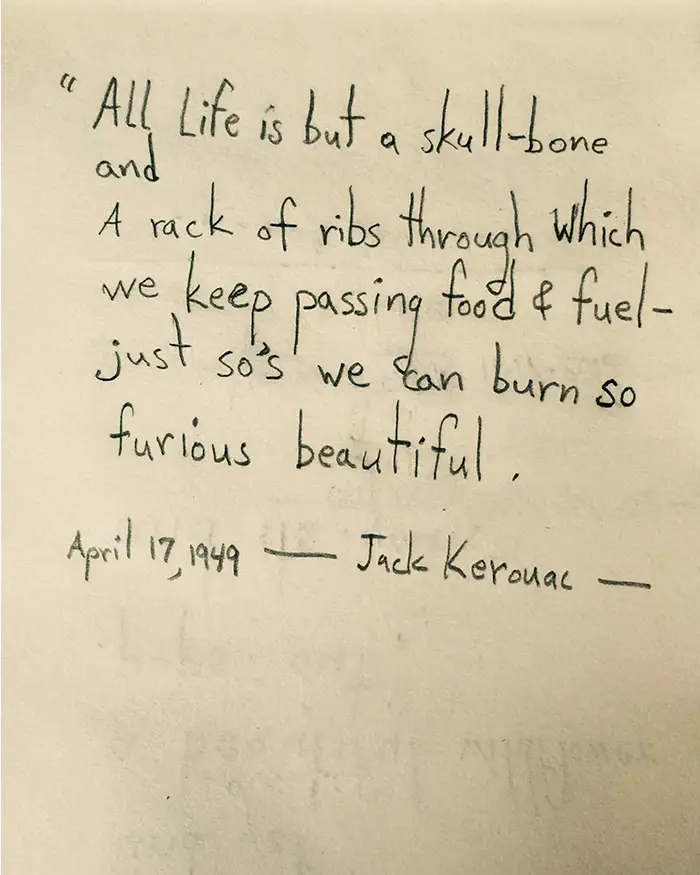 "All Life is but a skull-bone
and
A rack of ribs through which
we keep passing food & fuel-
just so's we can burn so
furious beautiful.
April 17, 1949 — Jack Kerouac —